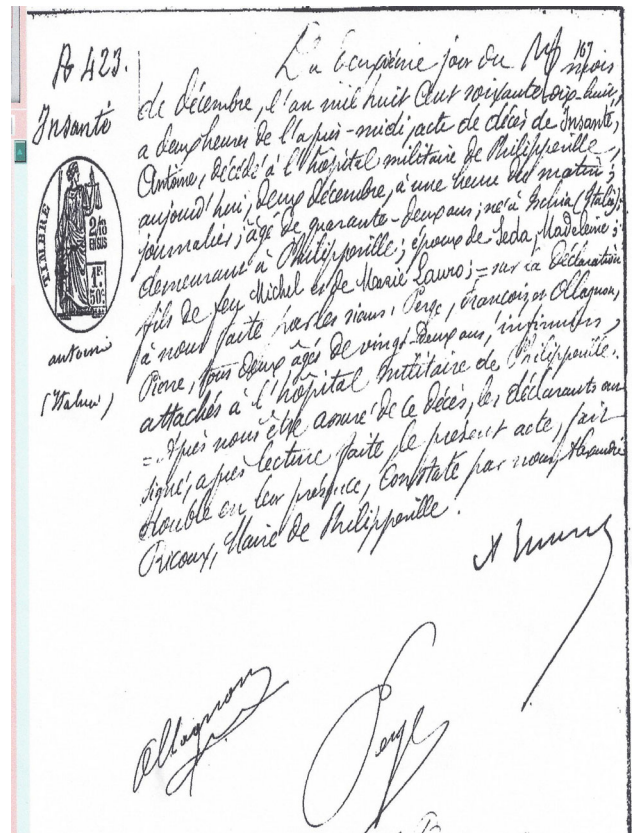 № 423.
Insanté
TIMBRE
2/10
EN SUS
1F.
50c
antoine
(Italien)
167
Le deuxième jour du mois
de décembre, l'an mil huit cent soixante-dix-huit,
a deux heures de l'après-midi, acte de décès de Insanté,
Antoine, décédé à l'hôpital militaire de Philippeville,
aujourd'hui, deux décembre, à une heure du matin;
journalier; âgé de quarante-deux ans; né à Ischia (Italie);
demeurant à Philippeville; époux de Leda, Madeleine;
fils de feu Michel et de Marie Lauro; = sur la déclaration
à nous faite par les sieurs: Perge, François et Ollagnon,
Pierre, tous deux âgés de vingt-deux ans, infirmiers,
attachés à l'hôpital Militaire de Philippeville.
= Après nous être assuré de ce décès, les déclarants ont
signé, après lecture faite, le présent acte, fait
double en leur présence, Constaté par nous, Alexandre
Ricoux, Maire de Philippeville.
Ollagnon
Perge